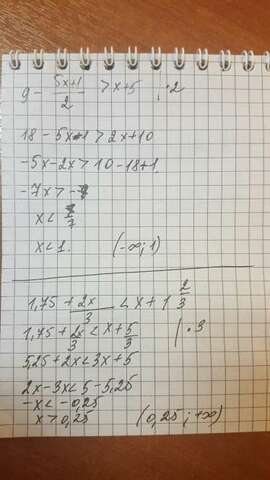 9 - (5x+1)/2 > x+5 | ·2
18 - 5x - 1 > 2x + 10
-5x - 2x > 10 - 18 + 1
-7x > -7
x < 7/7
x < 1. (-∞; 1)
1,75 + 2x/3 < x + 1 2/3
1,75 + 2x/3 < x + 5/3 | ·3
5,25 + 2x < 3x + 5
2x - 3x < 5 - 5,25
-x < -0,25
x > 0,25 (0,25; +∞)